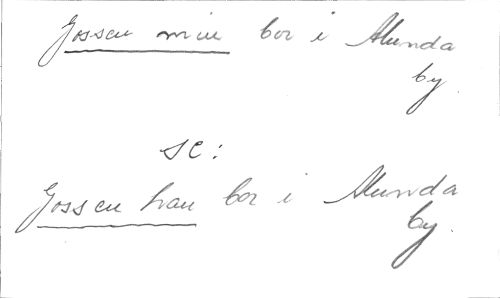 Gossen min bor i Alunda
by.
se:
Gossen han bor i Alunda
by.